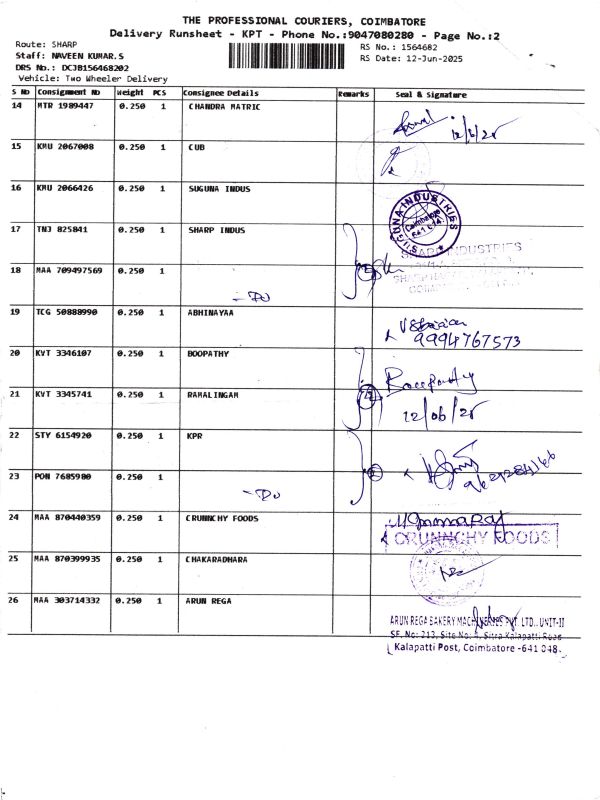 THE PROFESSIONAL COURIERS, COIMBATORE
Delivery Runsheet - KPT - Phone No.:9047080280 - Page No.:2
Route: SHARP
RS No.: 1564682
Staff: NAVEEN KUMAR.S
RS Date: 12-Jun-2025
DRS No.: DCJB156468202
Vehicle: Two Wheeler Delivery
S No Consignment No Weight PCS Consignee Details Remarks Seal & Signature
14 MTR 1989447 0.250 1 CHANDRA MATRIC
12/6/25
15 KMU 2067008 0.250 1 CUB
16 KMU 2066426 0.250 1 SUGUNA INDUS
SUGUNA INDUSTRIES
Coimbatore
641 014
17 TNJ 825841 0.250 1 SHARP INDUS
SHARP INDUSTRIES
18 MAA 709497569 0.250 1
- Do
19 TCG 50888990 0.250 1 ABHINAYAA
9994767573
20 KVT 3346107 0.250 1 BOOPATHY
Boopathy
21 KVT 3345741 0.250 1 RAMALINGAM
12/06/25
22 STY 6154920 0.250 1 KPR
23 PON 7685980 0.250 1
- Do
24 MAA 870440359 0.250 1 CRUNNCHY FOODS
CRUNNCHY FOODS
25 MAA 870399935 0.250 1 CHAKARADHARA
26 MAA 303714332 0.250 1 ARUN REGA
ARUN REGA BAKERY MACHINERIES PVT. LTD., UNIT-II
SF. No: 213, Site No: 4, Sitra Kalapatti Road
Kalapatti Post, Coimbatore -641 048.